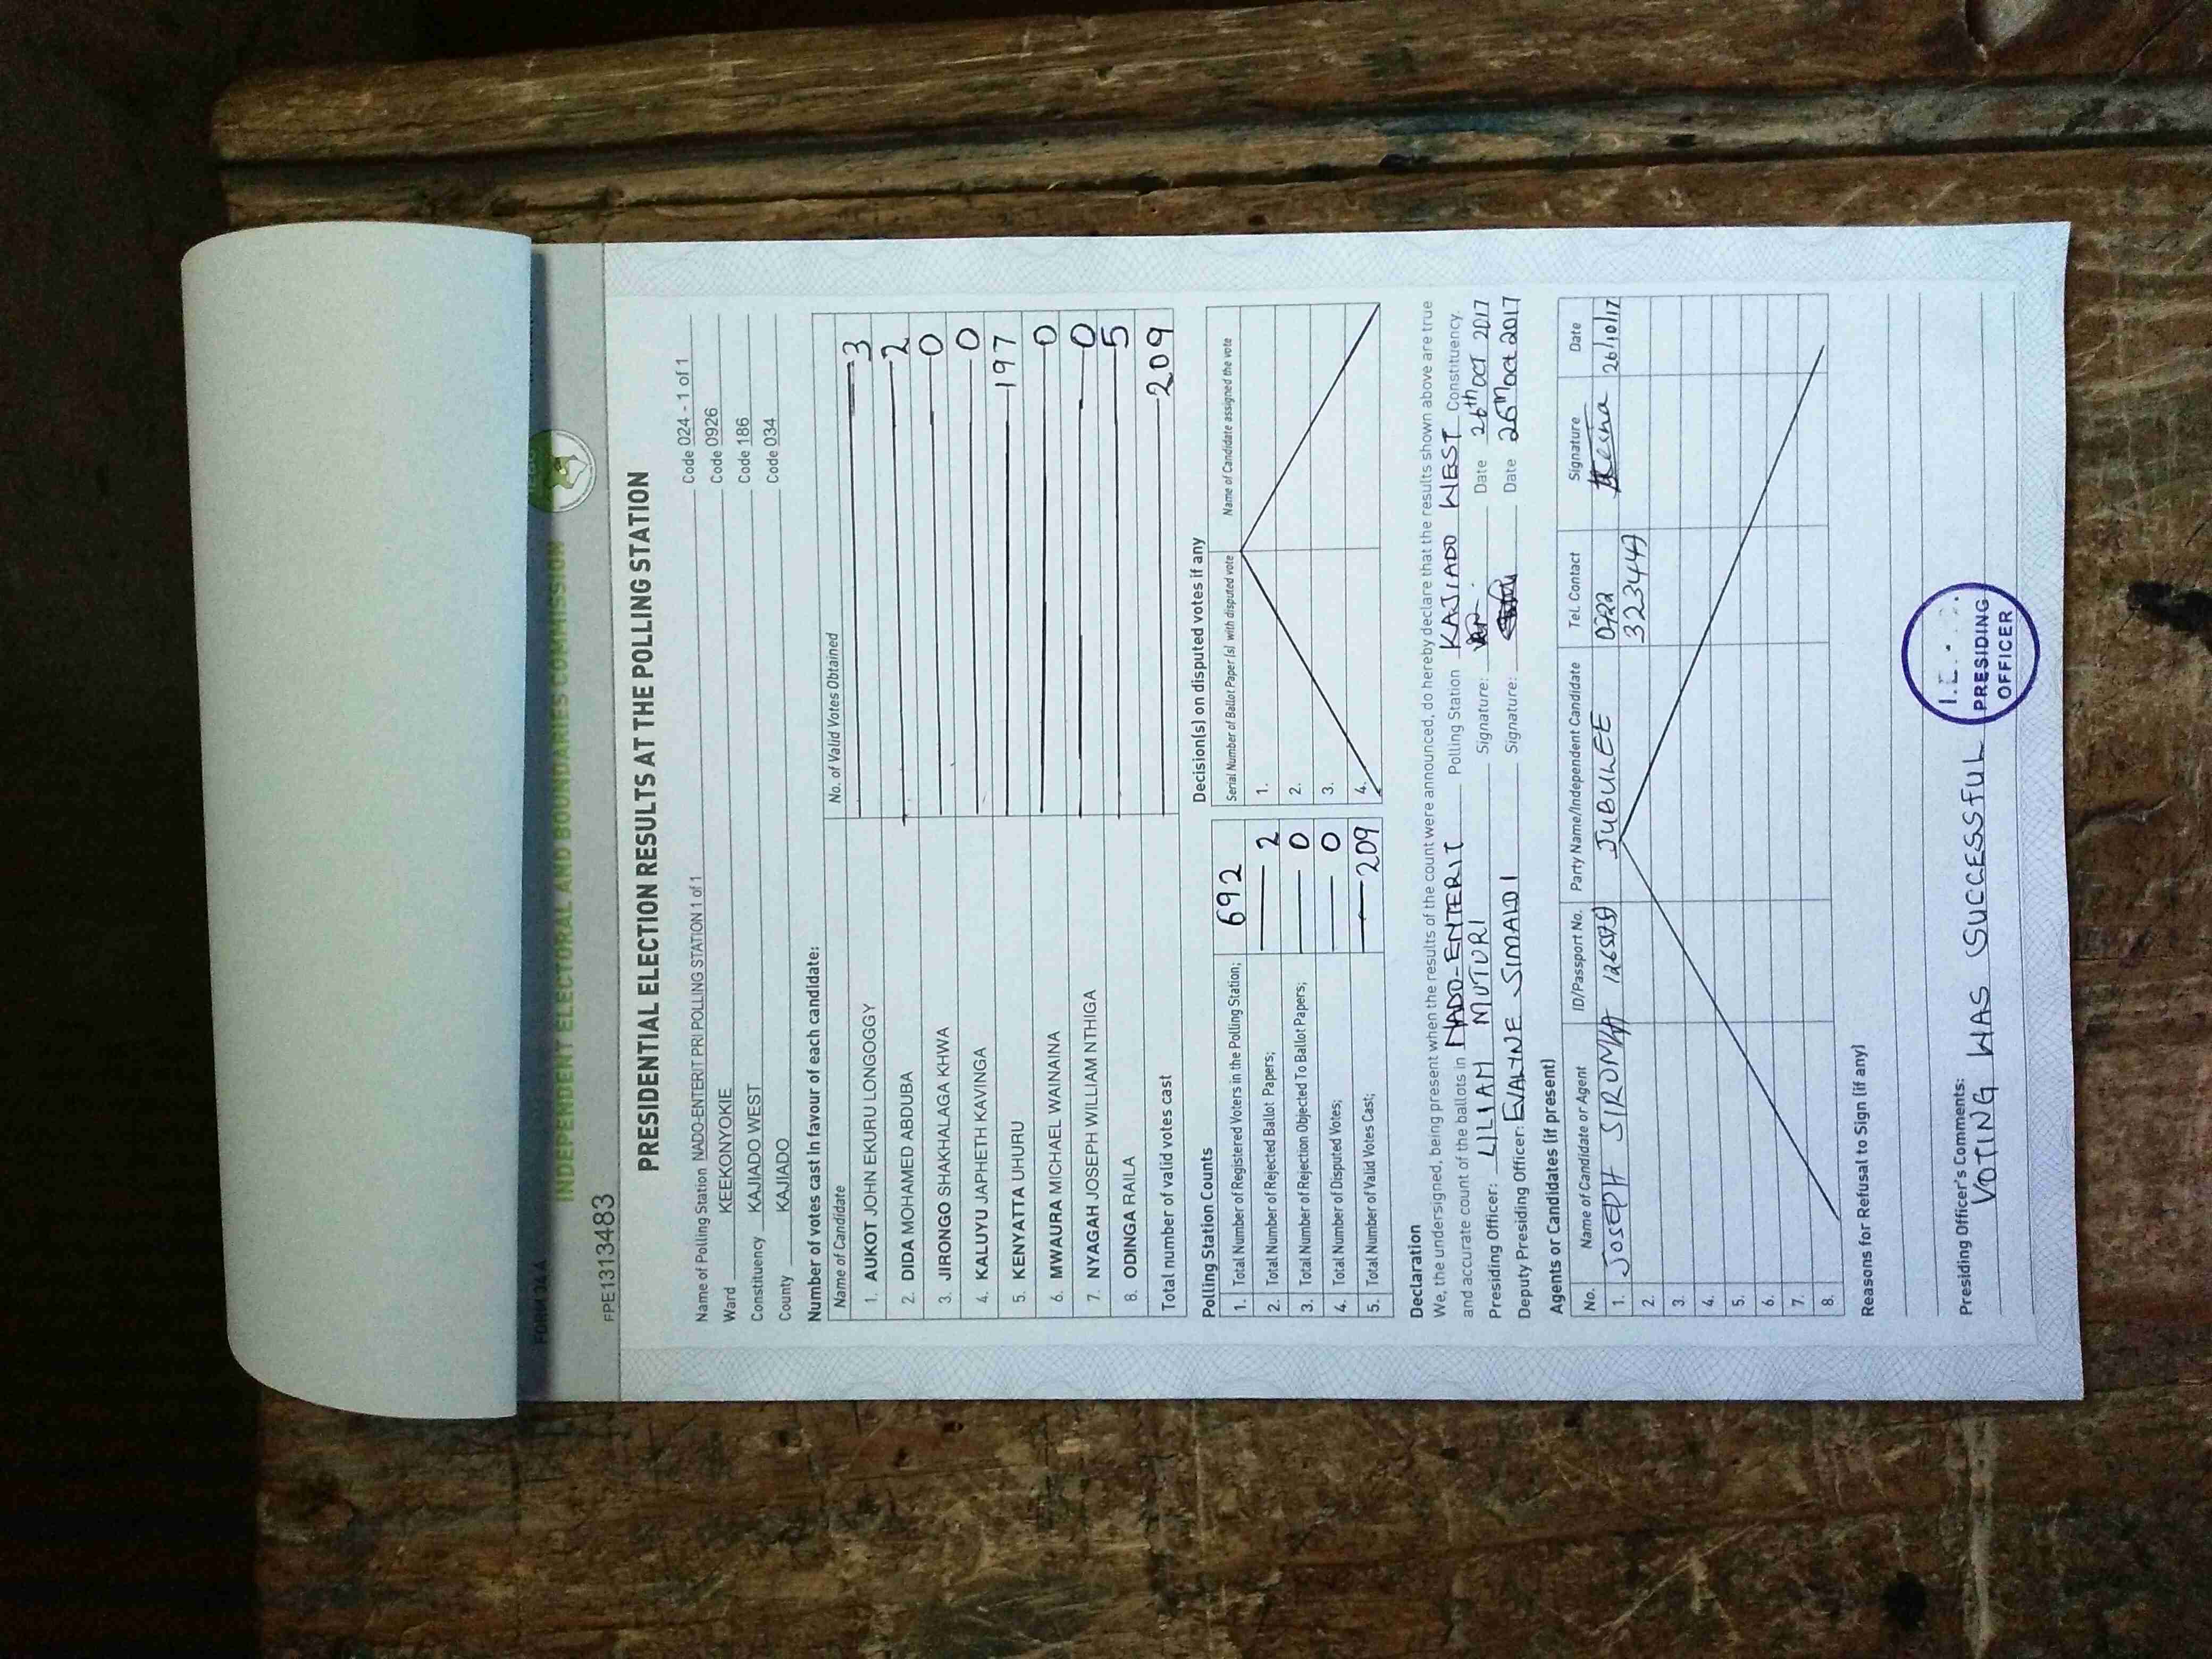 FORM 34A
INDEPENDENT ELECTORAL AND BOUNDARIES COMMISSION
FPE1313483
PRESIDENTIAL ELECTION RESULTS AT THE POLLING STATION
Name of Polling Station NADO-ENTERIT PRI POLLING STATION 1 of 1 Code 024 - 1 of 1
Ward KEEKONYOKIE Code 0926
Constituency KAJIADO WEST Code 186
County KAJIADO Code 034
Number of votes cast in favour of each candidate:
Name of Candidate No. of Valid Votes Obtained
1. AUKOT JOHN EKURU LONGOGGY 3
2. DIDA MOHAMED ABDUBA 2
3. JIRONGO SHAKHALAGA KHWA 0
4. KALUYU JAPHETH KAVINGA 0
5. KENYATTA UHURU 197
6. MWAURA MICHAEL WAINAINA 0
7. NYAGAH JOSEPH WILLIAM NTHIGA 0
8. ODINGA RAILA 5
Total number of valid votes cast 209
Polling Station Counts
1. Total Number of Registered Voters in the Polling Station; 692
2. Total Number of Rejected Ballot Papers; 2
3. Total Number of Rejection Objected To Ballot Papers; 0
4. Total Number of Disputed Votes; 0
5. Total Number of Valid Votes Cast; 209
Decision(s) on disputed votes if any
Serial Number of Ballot Paper (s) with disputed vote Name of Candidate assigned the vote
1.
2.
3.
4.
Declaration
We, the undersigned, being present when the results of the count were announced, do hereby declare that the results shown above are true
and accurate count of the ballots in NADO-ENTERIT Polling Station KAJIADO WEST Constituency.
Presiding Officer: LILIAN MUTURI Signature: Date 26th OCT 2017
Deputy Presiding Officer: EVALYNE SIMALOI Signature: Date 26th oct 2017
Agents or Candidates (if present)
No. Name of Candidate or Agent ID/Passport No. Party Name/Independent Candidate Tel. Contact Signature Date
1. JOSEPH JUBULEE 0722 26/10/17
323447
2.
3.
4.
5.
6.
7.
8.
Reasons for Refusal to Sign (if any)
Presiding Officer's Comments:
VOTING WAS SUCCESSFUL
PRESIDING
OFFICER